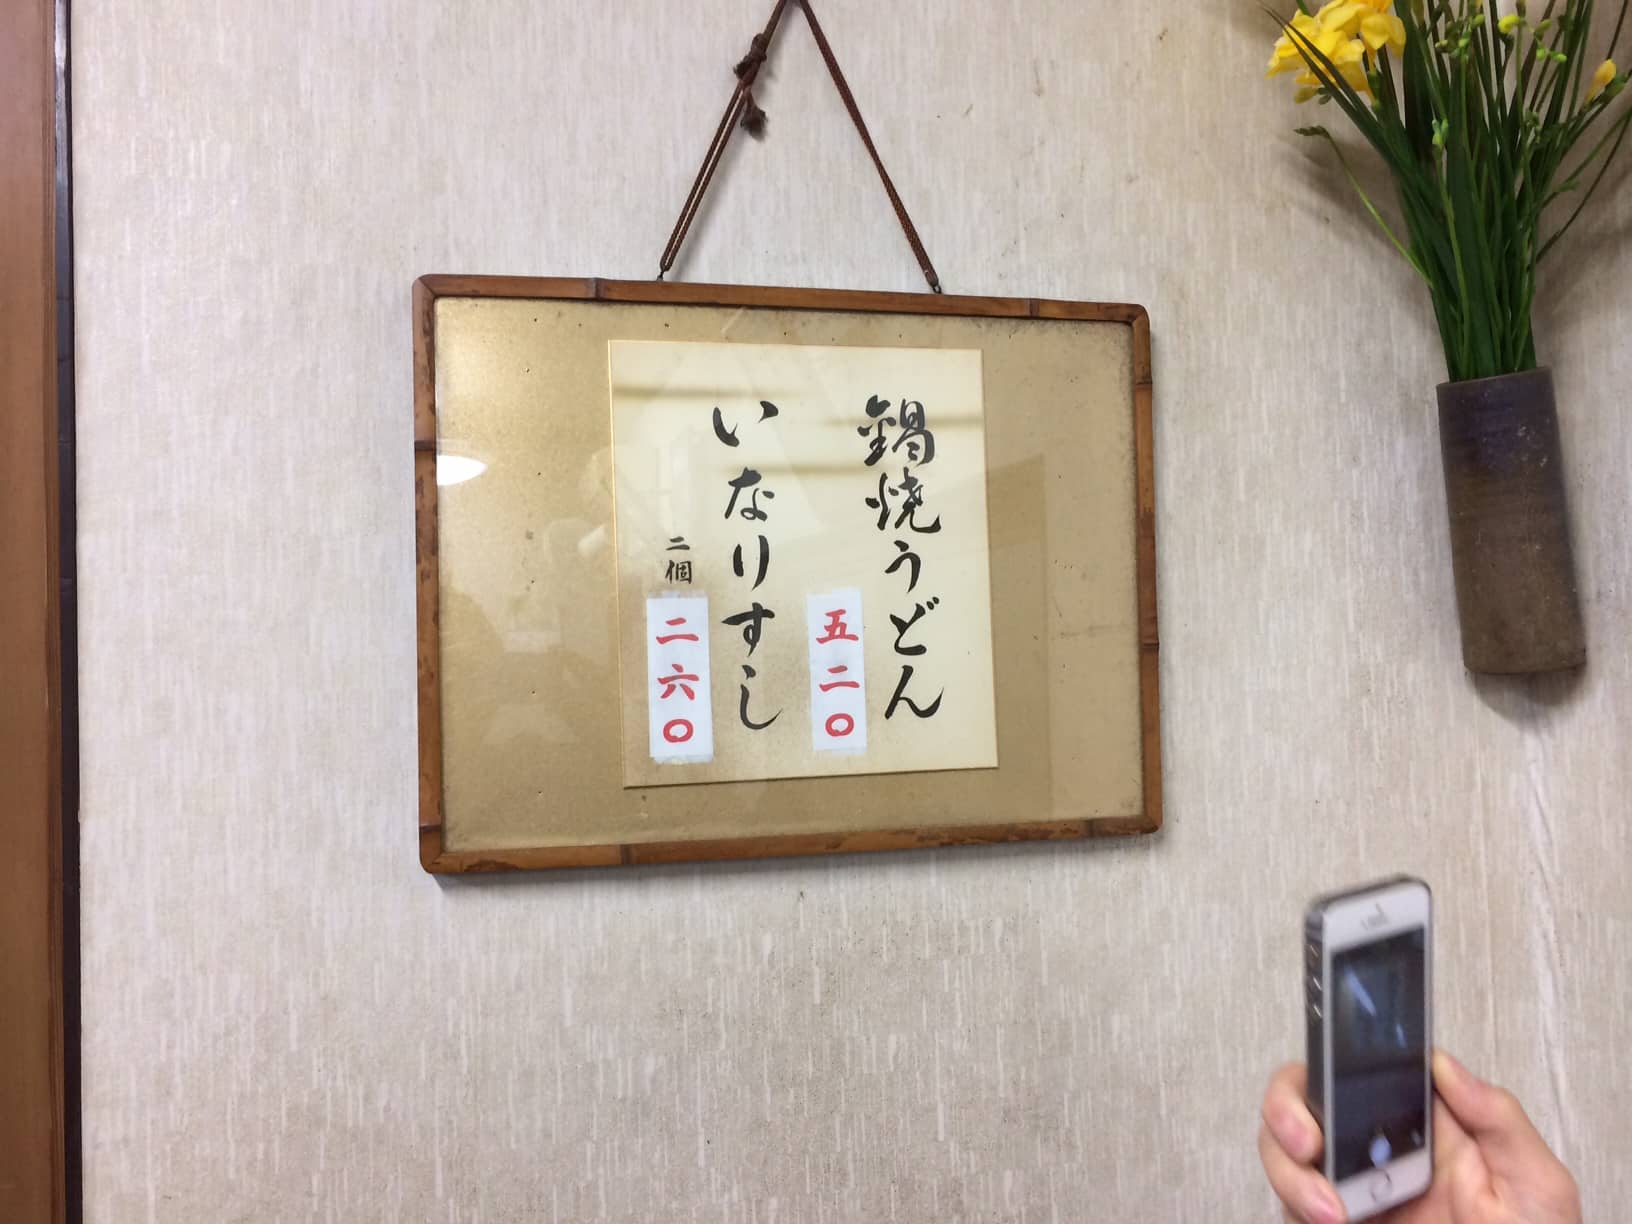 鍋焼うどん
五二〇
いなりすし
二個
二六〇